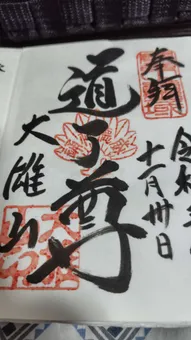 奉拝
十一月卅日
道了尊
大雄山